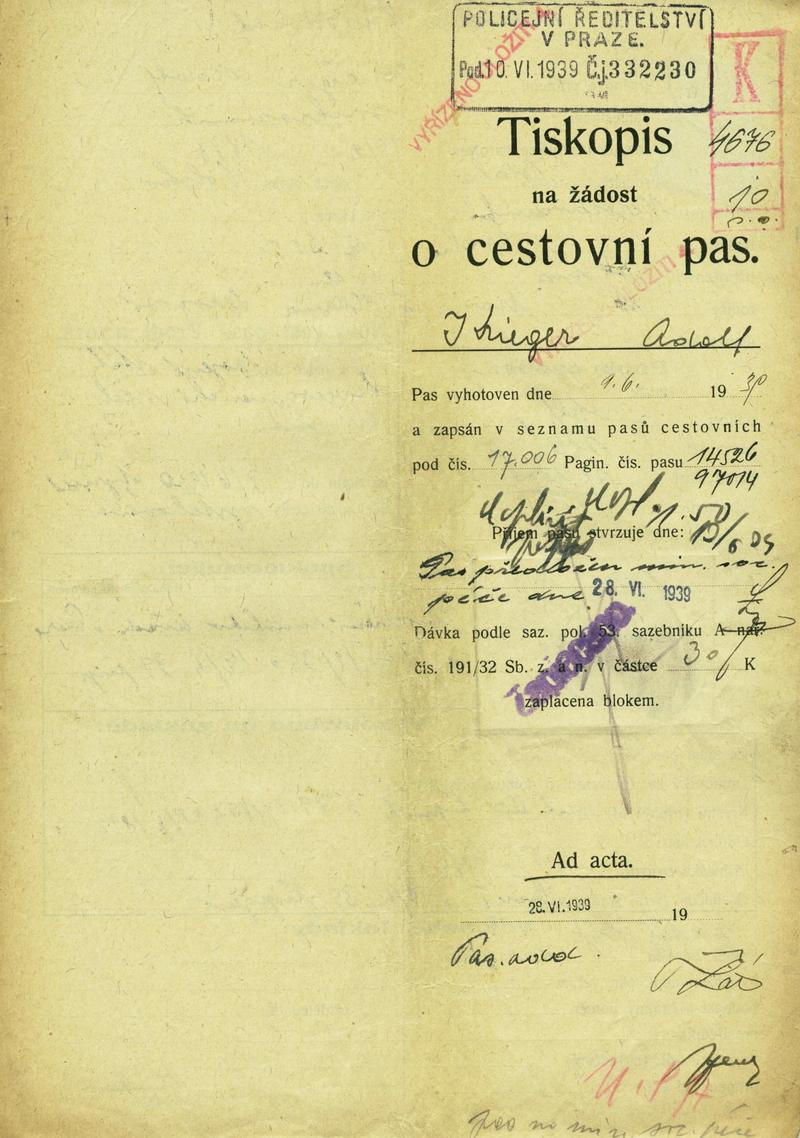 POLICEJNÍ ŘEDITELSTVÍ
V PRAZE.
Pod. 10. VI. 1939 Č.j. 332230
K
VYŘÍZENO ULOŽITI
Tiskopis
4676
na žádost
10
o cestovní pas.
Krieger Adolf
Pas vyhotoven dne 1.6. 1930
a zapsán v seznamu pasů cestovních
pod čís. 17.006 Pagin. čís. pasu 14526
97014
1.50
Příjem pasu stvrzuje dne: 13/6 39
Pas předložen min. soc.
péče dne 28. VI. 1939
Dávka podle saz. pol. 53. sazebníku A nař.
čís. 191/32 Sb. z. a n. v částce 30 K
zaplacena blokem.
Ad acta.
28. VI. 1939 19
Pas. odd.
pas na min. soc. péče